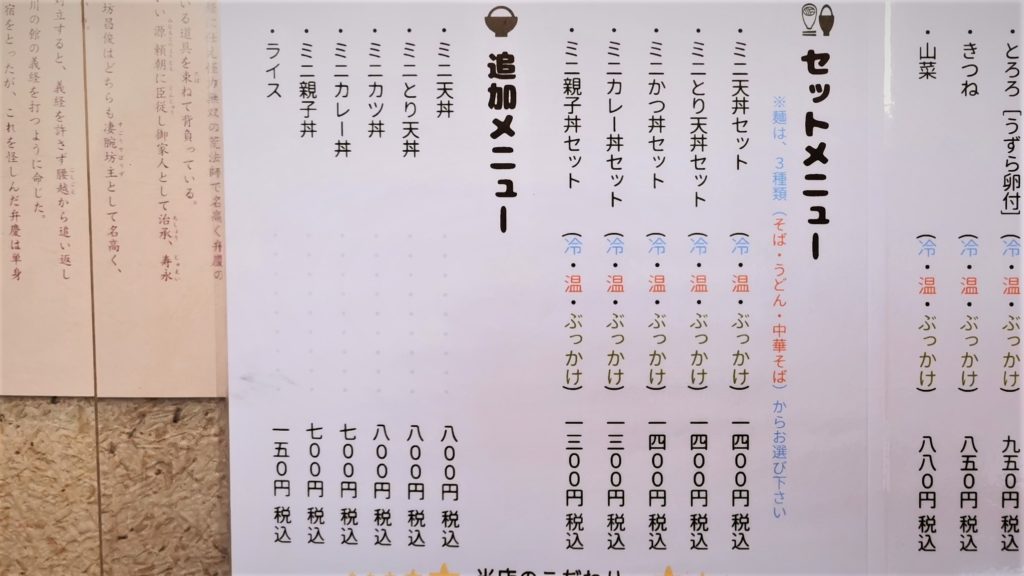 ・とろろ［うずら卵付］（冷・温・ぶっかけ） 九五０円 税込
・きつね（冷・温・ぶっかけ） 八五０円 税込
・山菜（冷・温・ぶっかけ） 八八０円 税込
セットメニュー
※麺は、３種類（そば・うどん・中華そば）からお選び下さい
・ミニ天丼セット（冷・温・ぶっかけ） 一四００円 税込
・ミニとり天丼セット（冷・温・ぶっかけ） 一四００円 税込
・ミニかつ丼セット（冷・温・ぶっかけ） 一四００円 税込
・ミニカレー丼セット（冷・温・ぶっかけ） 一三００円 税込
・ミニ親子丼セット（冷・温・ぶっかけ） 一三００円 税込
追加メニュー
・ミニ天丼 八００円 税込
・ミニとり天丼 八００円 税込
・ミニカツ丼 八００円 税込
・ミニカレー丼 七００円 税込
・ミニ親子丼 七００円 税込
・ライス 一五０円 税込
当店のこだわり
法師で名高く弁慶の
いる道具を束ねて背負っている。
い源頼朝に臣従し御家人として治承、寿永
坊昌俊はどちらも凄腕坊主として名高く、
対立すると、義経を許さず腰越から追い返し
川の館の義経を打つように命じた。
宿をとったが、これを怪しんだ弁慶は単身